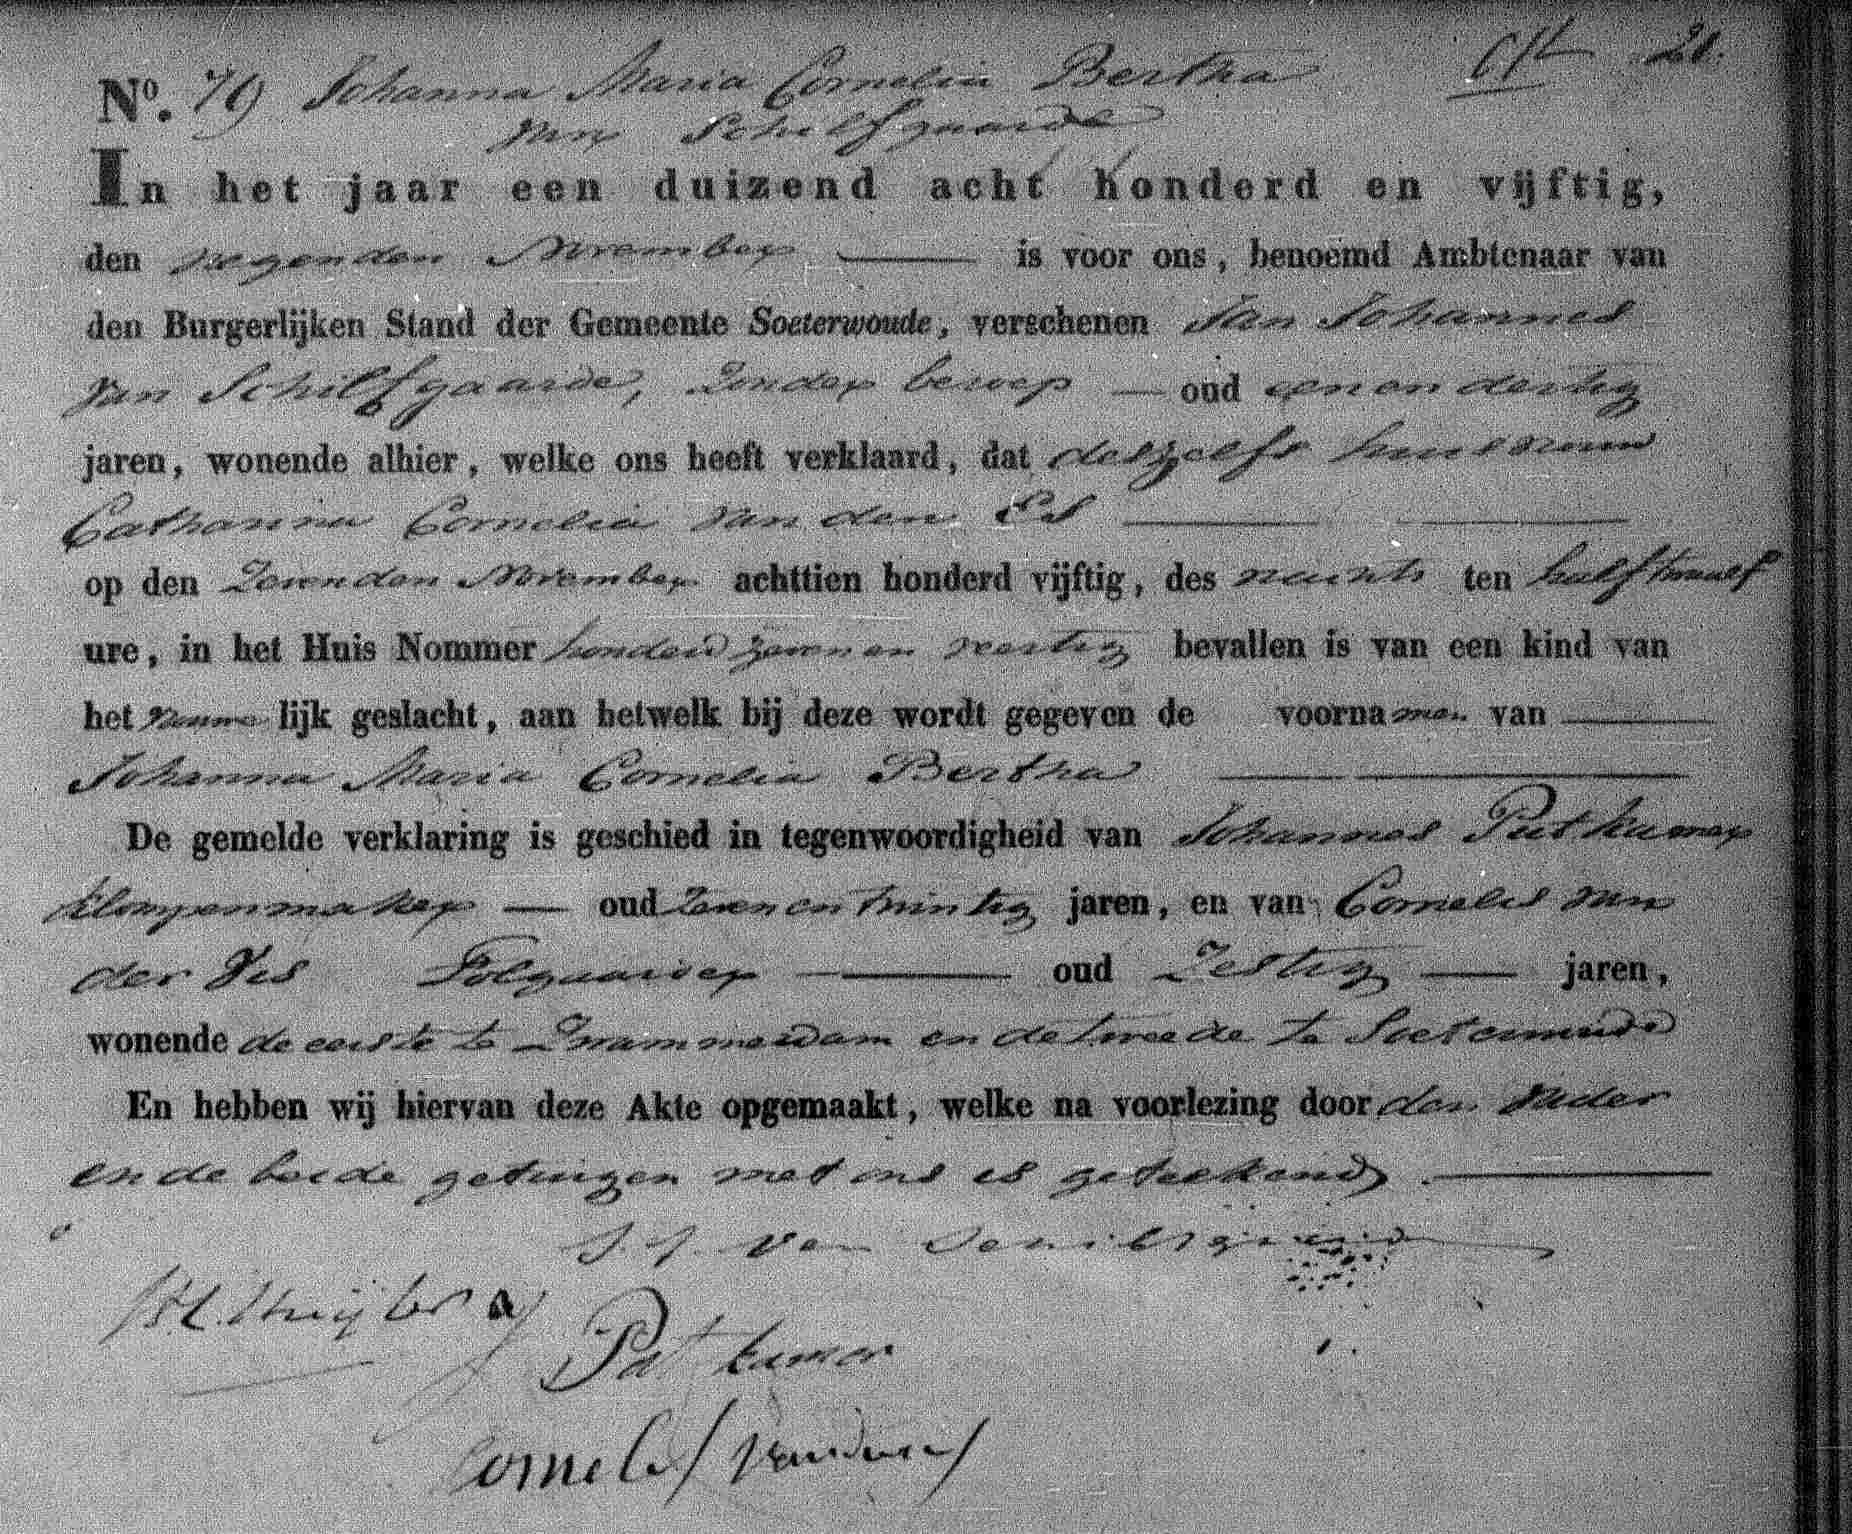 No. 79 Johanna Maria Cornelia Bertha
van Schilfgaarde
In het jaar een duizend acht honderd en vijftig,
den negenden November is voor ons, benoemd Ambtenaar van
den Burgerlijken Stand der Gemeente Soeterwoude, verschenen Jan Johannes
van Schilfgaarde, Zonder beroep oud een en dertig
jaren, wonende alhier, welke ons heeft verklaard, dat deszelfs huisvrouw
Catharina Cornelia van den
op den Zevenden November achttien honderd vijftig, des nachts ten half twaalf
ure, in het Huis Nommer honderd zeven en veertig bevallen is van een kind van
het vrouwelijk geslacht, aan hetwelk bij deze wordt gegeven de voornamen van
Johanna Maria Cornelia Bertha
De gemelde verklaring is geschied in tegenwoordigheid van Johannes Putkamer
klompenmaker oud Zeven en twintig jaren, en van Cornelis van
der oud Zestig jaren,
wonende de eerste te Zwammerdam en de tweede te Soeterwoude
En hebben wij hiervan deze Akte opgemaakt, welke na voorlezing door den vader
en de beide getuigen met ons is geteekend
J. J. van Schilfgaarde
Putkamer
Cornelis